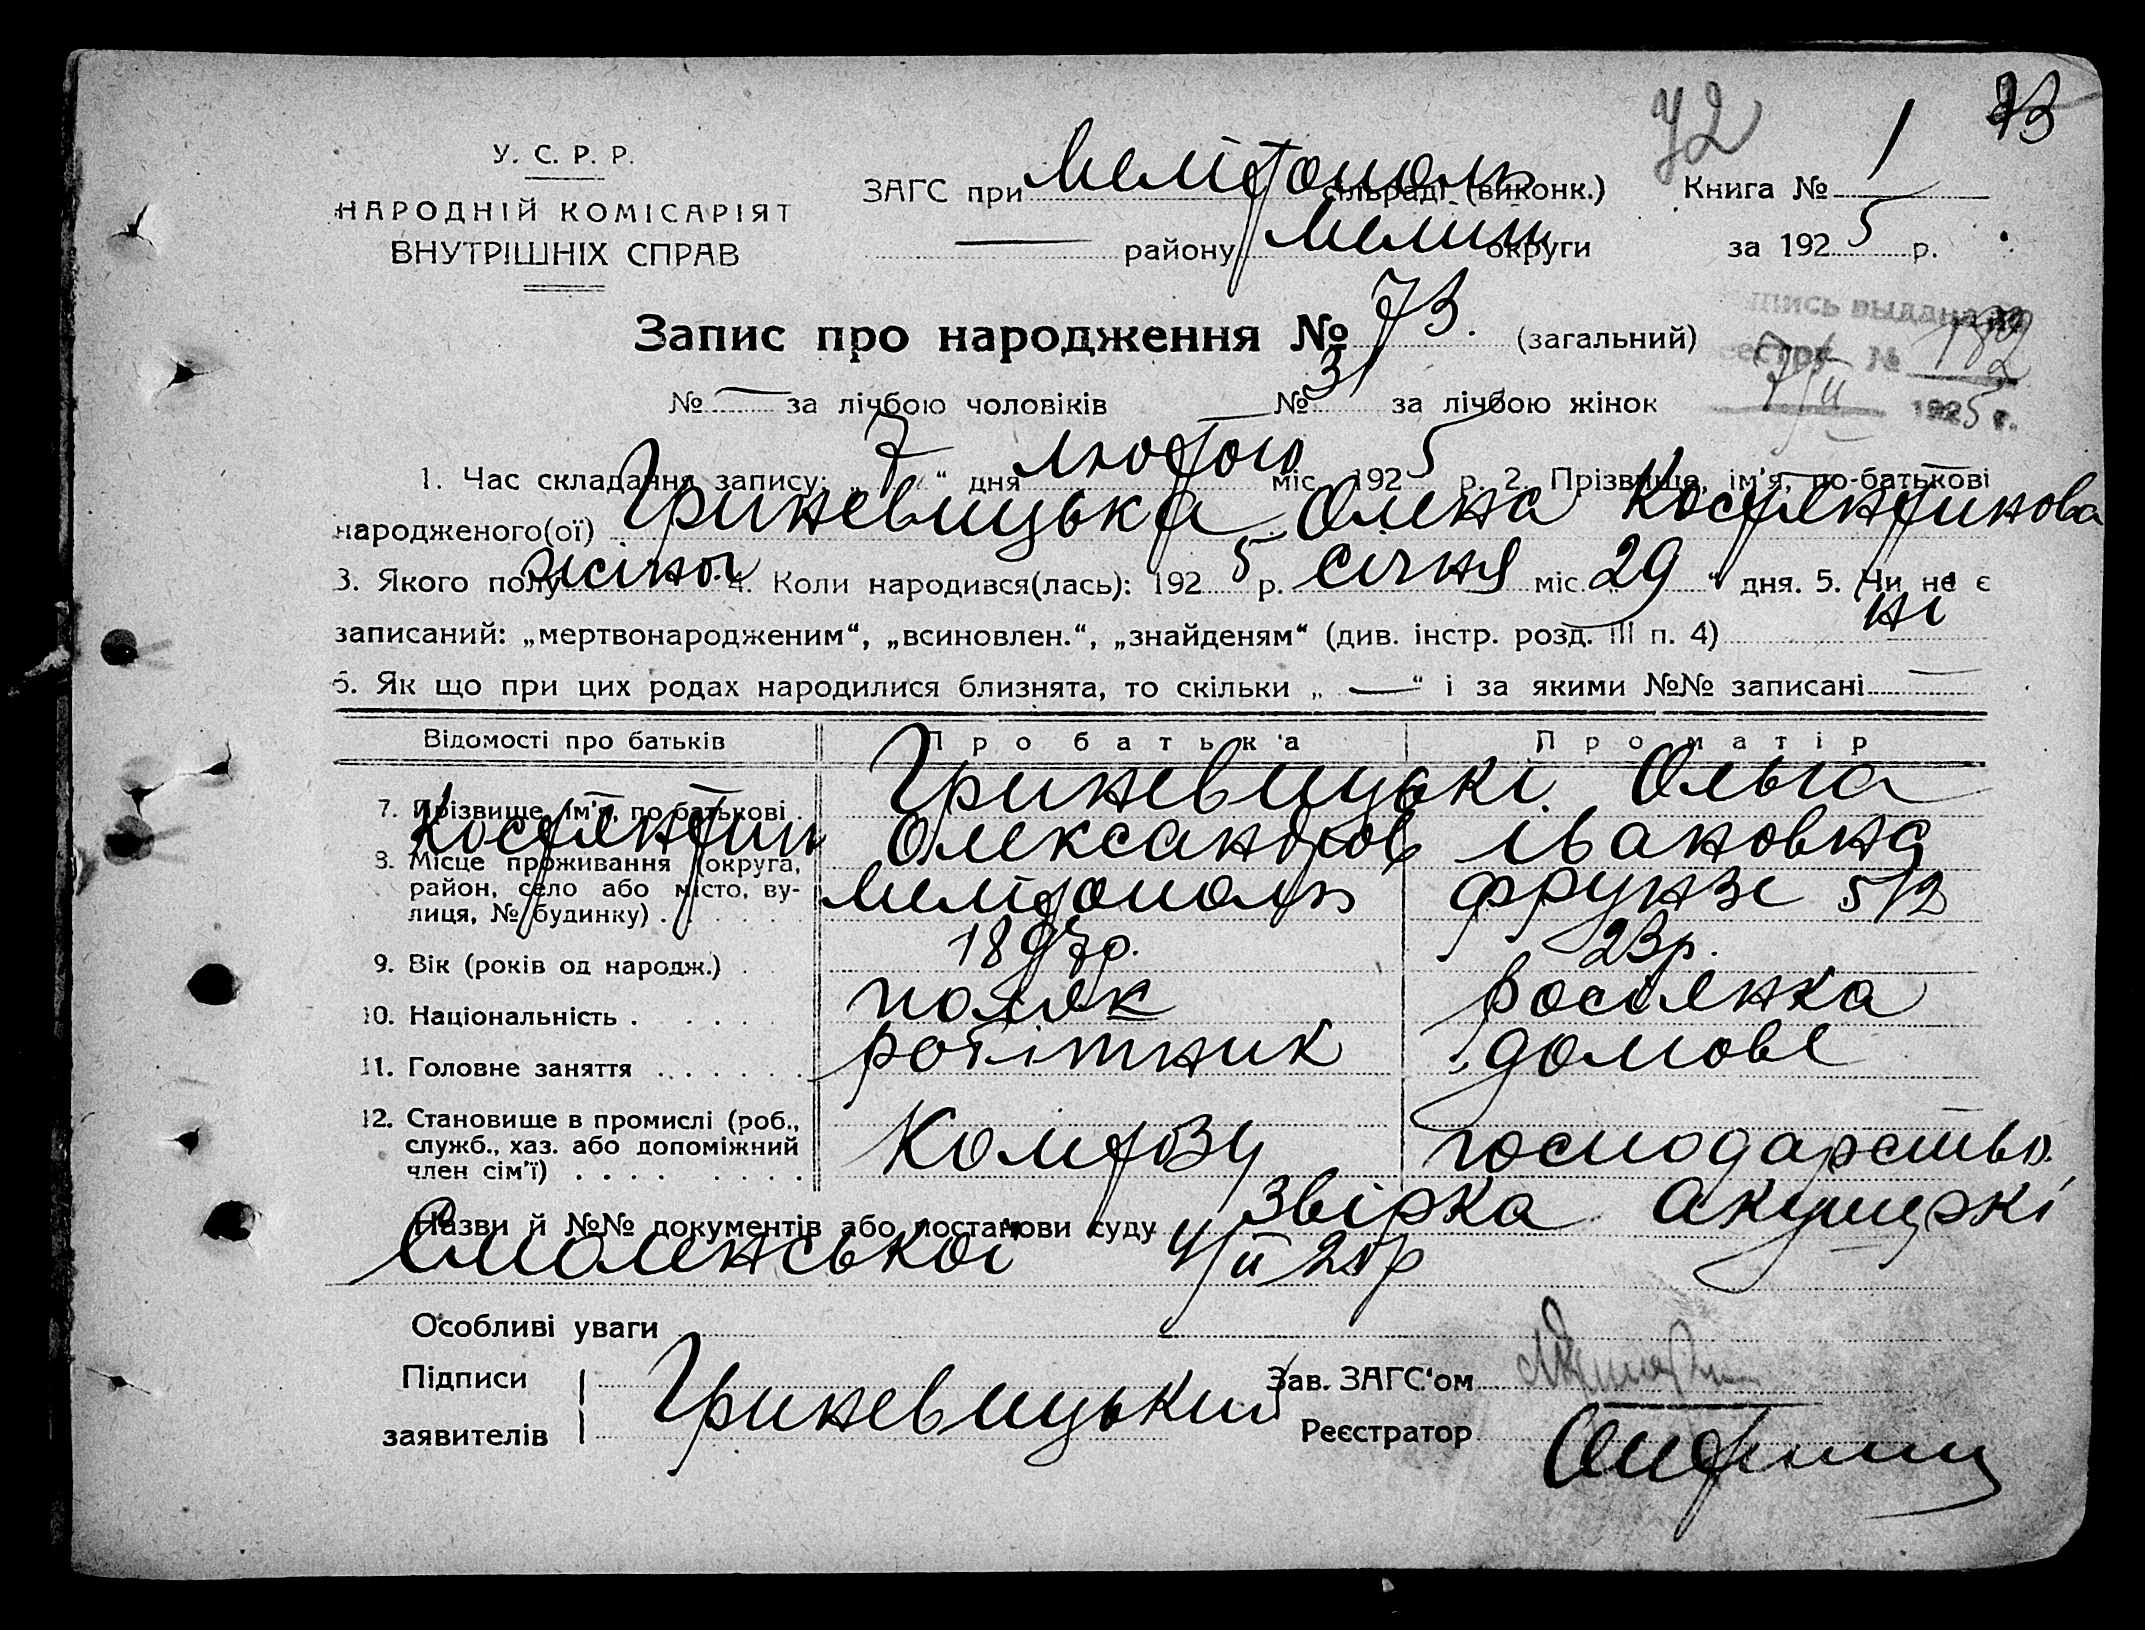 72 73
У. С. Р. Р.
НАРОДНІЙ КОМІСАРІЯТ
ВНУТРІШНІХ СПРАВ
ЗАГС при Мелітополь сільраді (виконк.) Книга № 1
району Меліт округи за 1925 р.
Запис про народження № 73. (загальний)
пись выдана
реестру № 182
7/II 1925 г.
№ — за лічбою чоловіків № 31 за лічбою жінок
1. Час складання запису: „7“ дня лютого міс. 1925 р. 2. Прізвище, ім'я, по-батькові
народженого(ої) Гриневицька Олена Костянтинова
3. Якого полу жіно. 4. Коли народився(лась): 1925 р. січня міс. „29“ дня. 5. Чи не є
записаний: „мертвонародженим“, „всиновлен.“, „знайденям“ (див. інстр. розд. III п. 4) ні
6. Як що при цих родах народилися близнята, то скільки „—“ і за якими №№ записані —
Відомості про батьків Про батька Про матір
7. Прізвище, ім'я, по батькові Гриневицькі Ольга
Костянтин Олександров Івановна
8. Місце проживання (округа, район, село або місто, вулиця, № будинку) Мелітополь Фрунзе 5/2
9. Вік (років од народж.) 1897р. 23р.
10. Національність поляк росіянка
11. Головне заняття робітник домове
12. Становище в промислі (роб., служб., хаз. або допоміжний член сім'ї) господарство.
Назви й №№ документів або постанови суду Звірка акушеркі
Смоленської 4/II 25р
Особливі уваги
Підписи
заявителів Гриневицький
Зав. ЗАГС'ом
Реєстратор